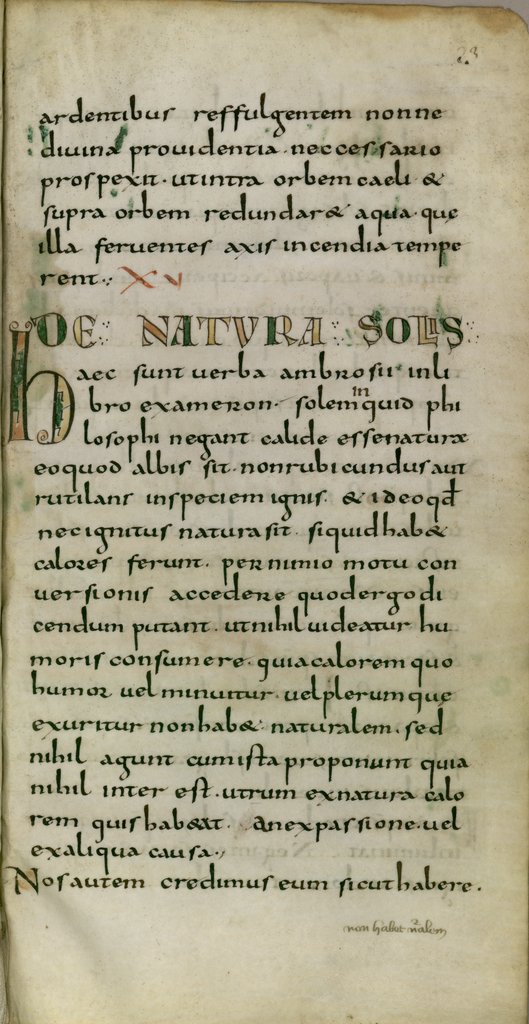 23
ardentibus reffulgentem nonne
diuina prouidentia · neccessario
prospexit · ut intra orbem caeli &
supra orbem redundar& aqua · que
illa feruentes axis incendia tempe
rent · XV
DE NATVRA SOLIS
haec sunt uerba ambrosii in li
bro exameron · solem inquid phi
losophi negant calide esse naturæ
eo quod albis sit · non rubicundus aut
rutilans in speciem ignis · & ideo qđ
nec ignitus natura sit · si quid hab&
calores ferunt · per nimio motu con
uersionis accedere quod ergo di
cendum putant · ut nihil uideatur hu
moris consumere · quia calorem quo
humor uel minuitur · uel plerumque
exuritur non hab& · naturalem · sed
nihil agunt cum ista proponunt quia
nihil inter est · utrum ex natura calo
rem quis hab&at · An ex passione · uel
ex aliqua causa ·,
Nos autem credimus eum sicut habere ·
non habet nãlem